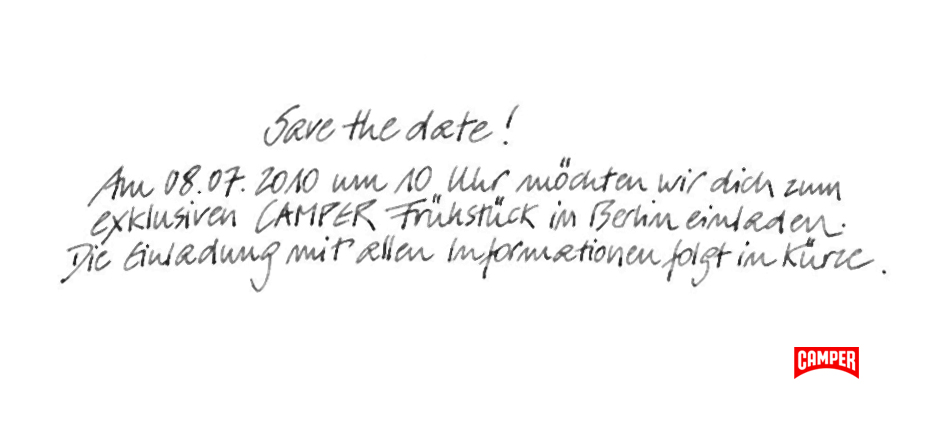 Save the date!
Am 08.07.2010 um 10 Uhr möchten wir dich zum
exklusiven CAMPER Frühstück in Berlin einladen.
Die Einladung mit allen Informationen folgt in Kürze.
CAMPER